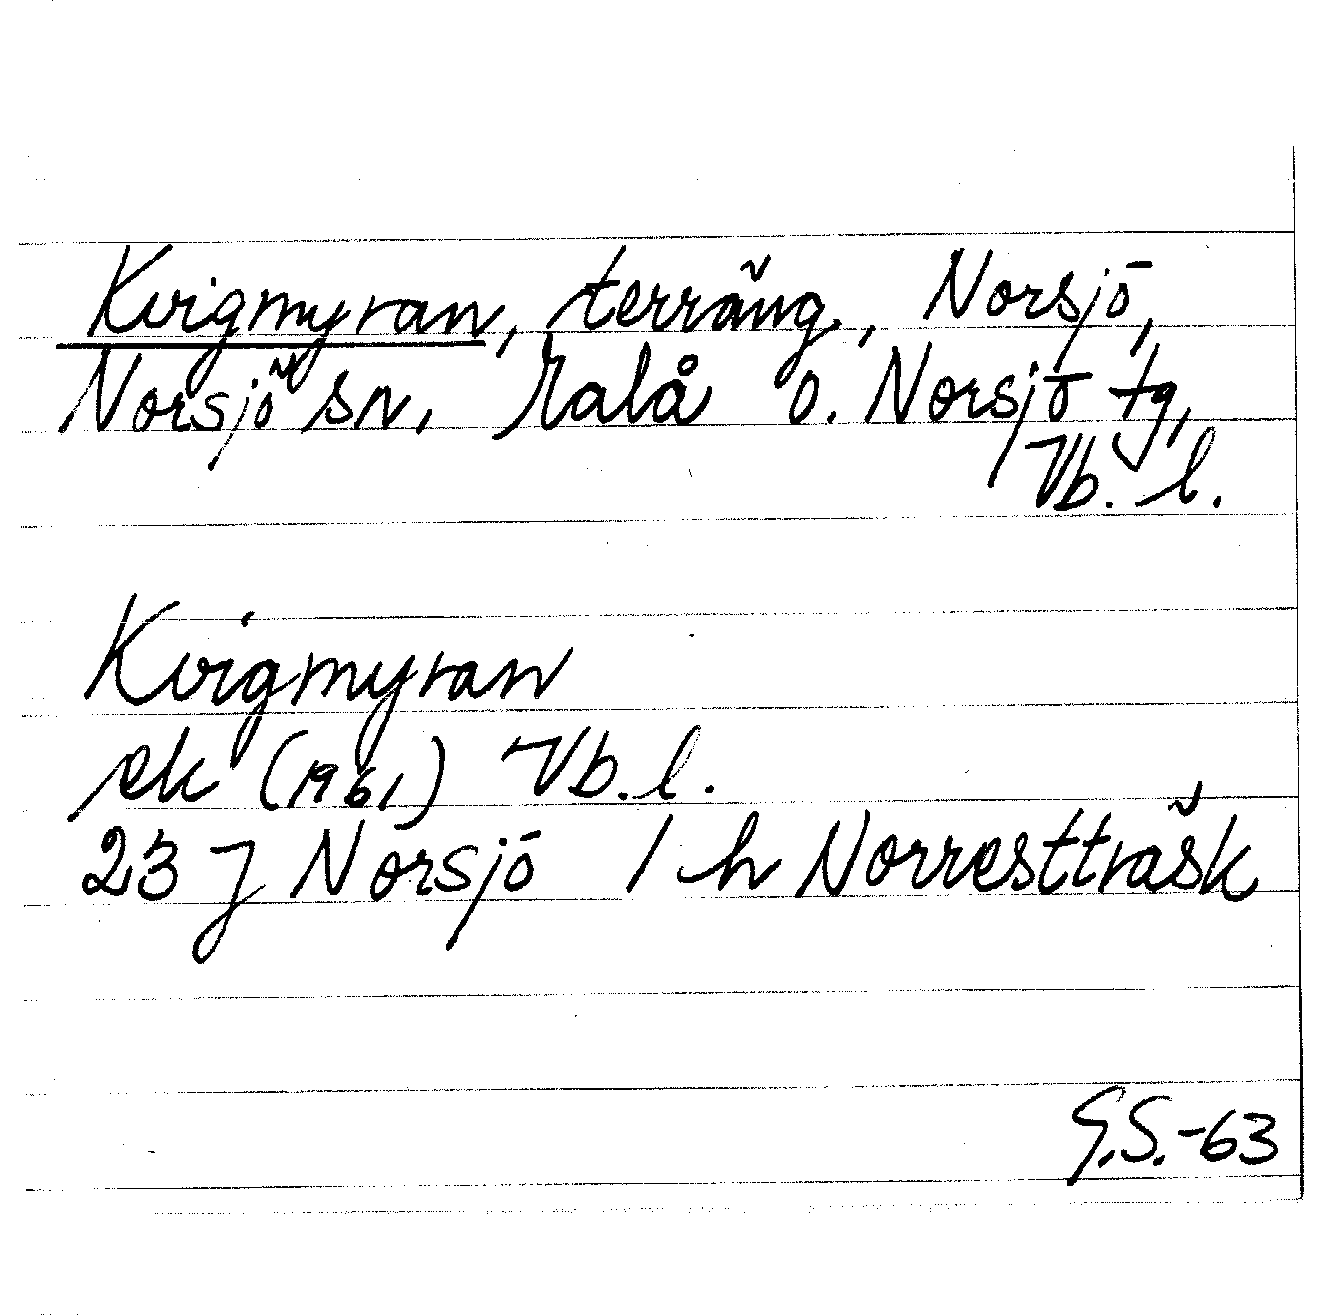 Kvigmyran, terräng., Norsjö,
Norsjö sn, Malå o. Norsjö tg,
Vb. l.
Kvigmyran
ek (1961) Vb. l.
23 J Norsjö 1 h Norrestträsk
G.S.-63